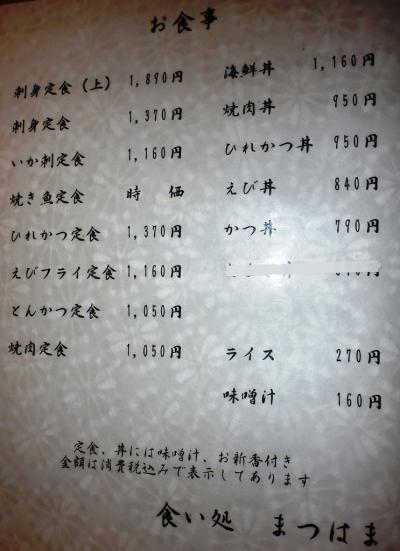 お食事
刺身定食（上） 1,890円
刺身定食 1,370円
いか刺定食 1,160円
焼き魚定食 時 価
ひれかつ定食 1,370円
えびフライ定食 1,160円
とんかつ定食 1,050円
焼肉定食 1,050円
海鮮丼 1,160円
焼肉丼 950円
ひれかつ丼 950円
えび丼 840円
かつ丼 790円
ライス 270円
味噌汁 160円
定食、丼には味噌汁、お新香付き
金額は消費税込みで表示してあります
食い処 まつはま